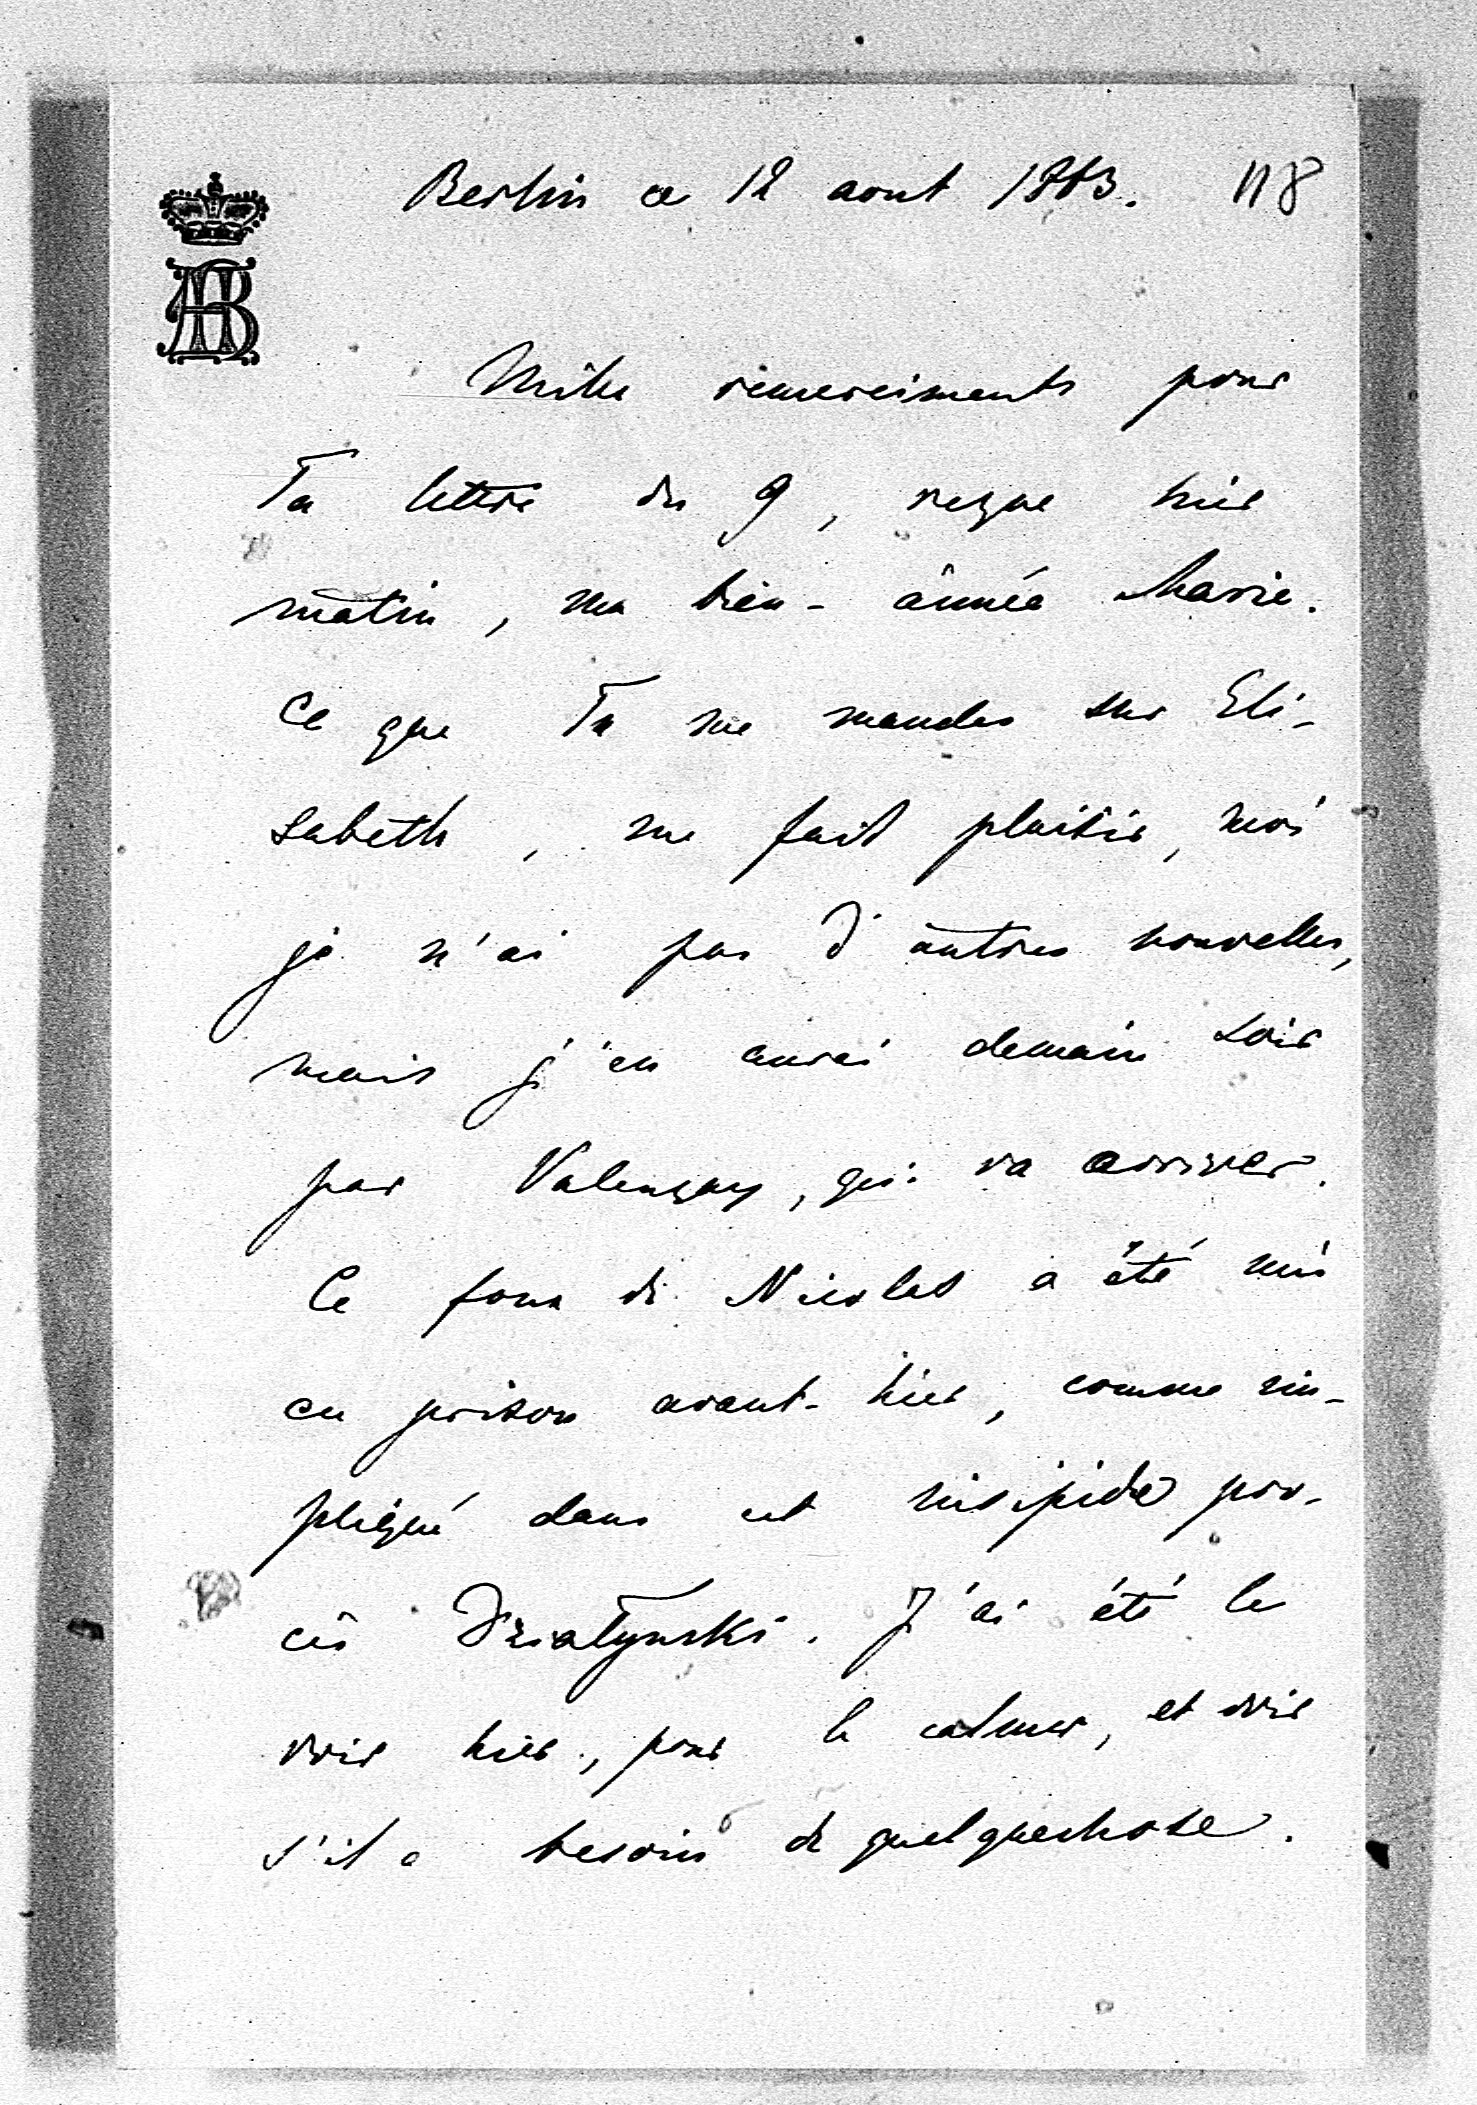 Berlin ce 12 aout 1863. 118
AB
Mille remerciments pour
Ta lettre du 9, reçue hier
matin, ma bien-aimée Marie.
Ce que Tu me mandes sur Eli-
sabeth, me fait plaisir, moi
je n'ai pas d'autres nouvelles,
mais j'en aurai demain soir
par Valençay, qui va arriver.
Ce fou de Nicolas a été mis
en prison avant-hier, comme im-
pliqué dans cet insipide pro-
cès Dziatynski. J'ai été le
voir hier, pour le calmer, et voir
s'il a besoin de quelquechose.